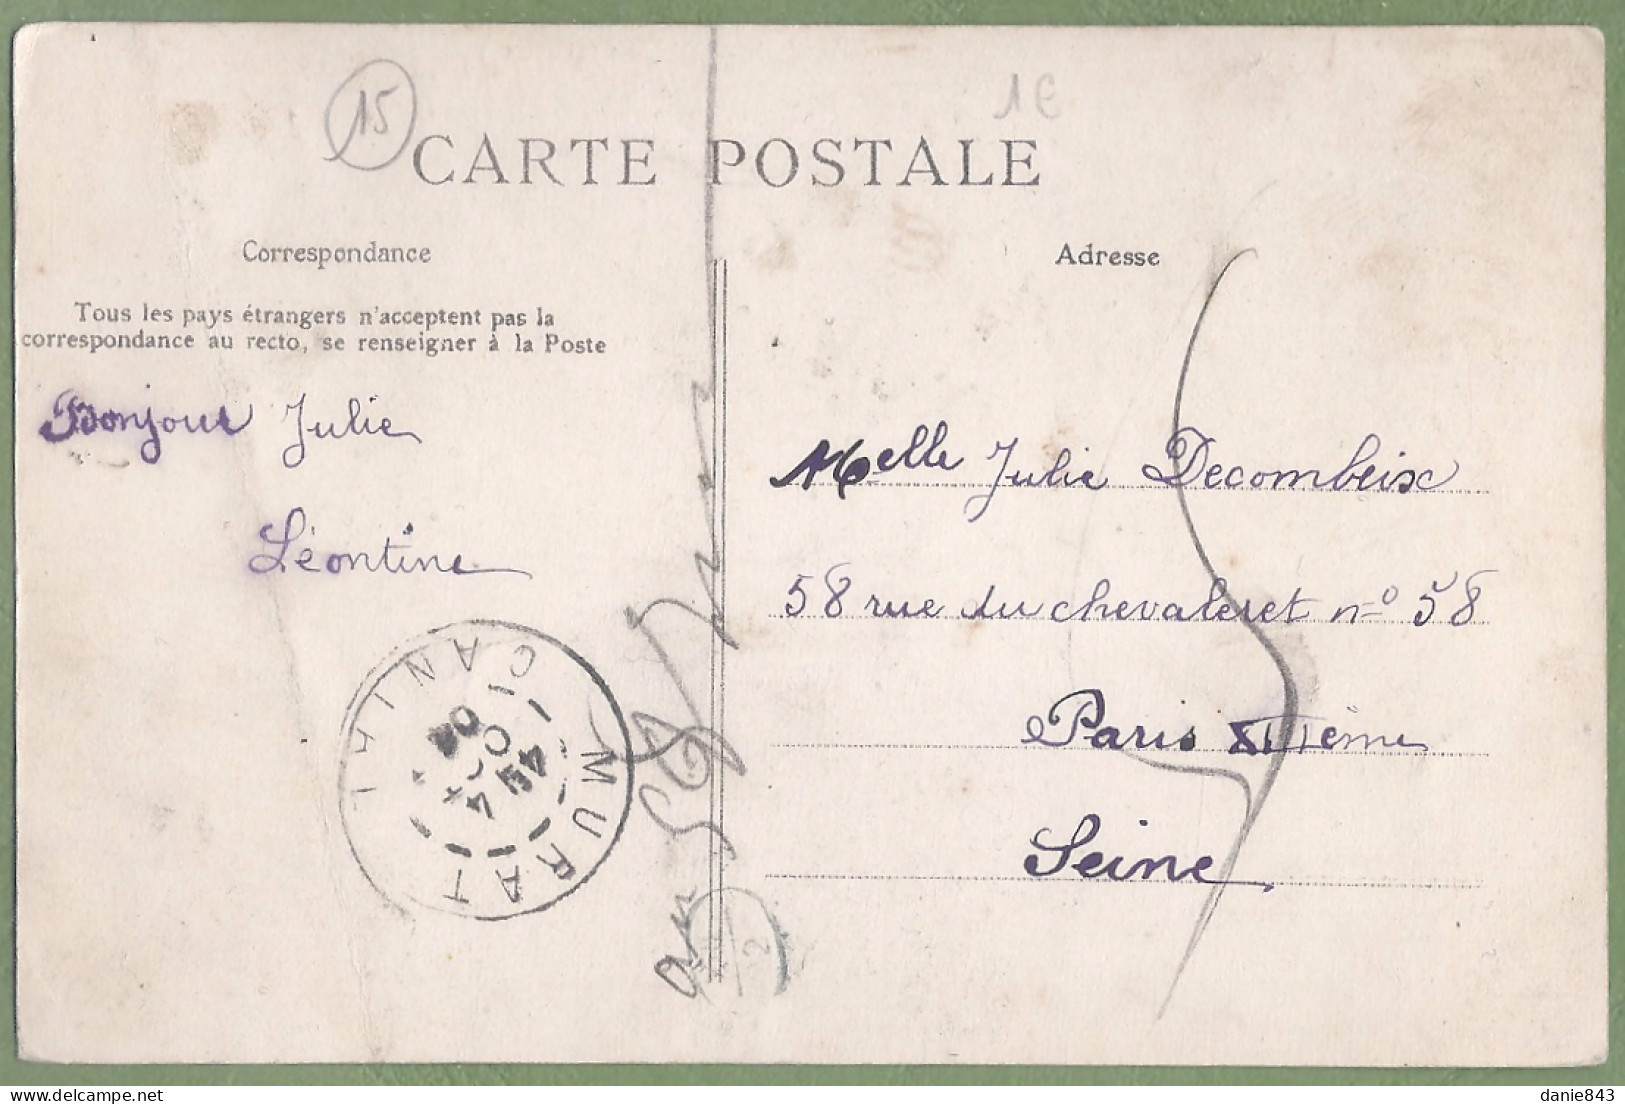 15
1€
CARTE POSTALE
Correspondance
Tous les pays étrangers n'acceptent pas la
correspondance au recto, se renseigner à la Poste
Bonjour Julie
Léontine
MURAT
CANTAL
4
04
Adresse
Melle Julie Decombeix
58 rue du chevaleret n° 58
Paris XIIIème
Seine
5
2
danie843